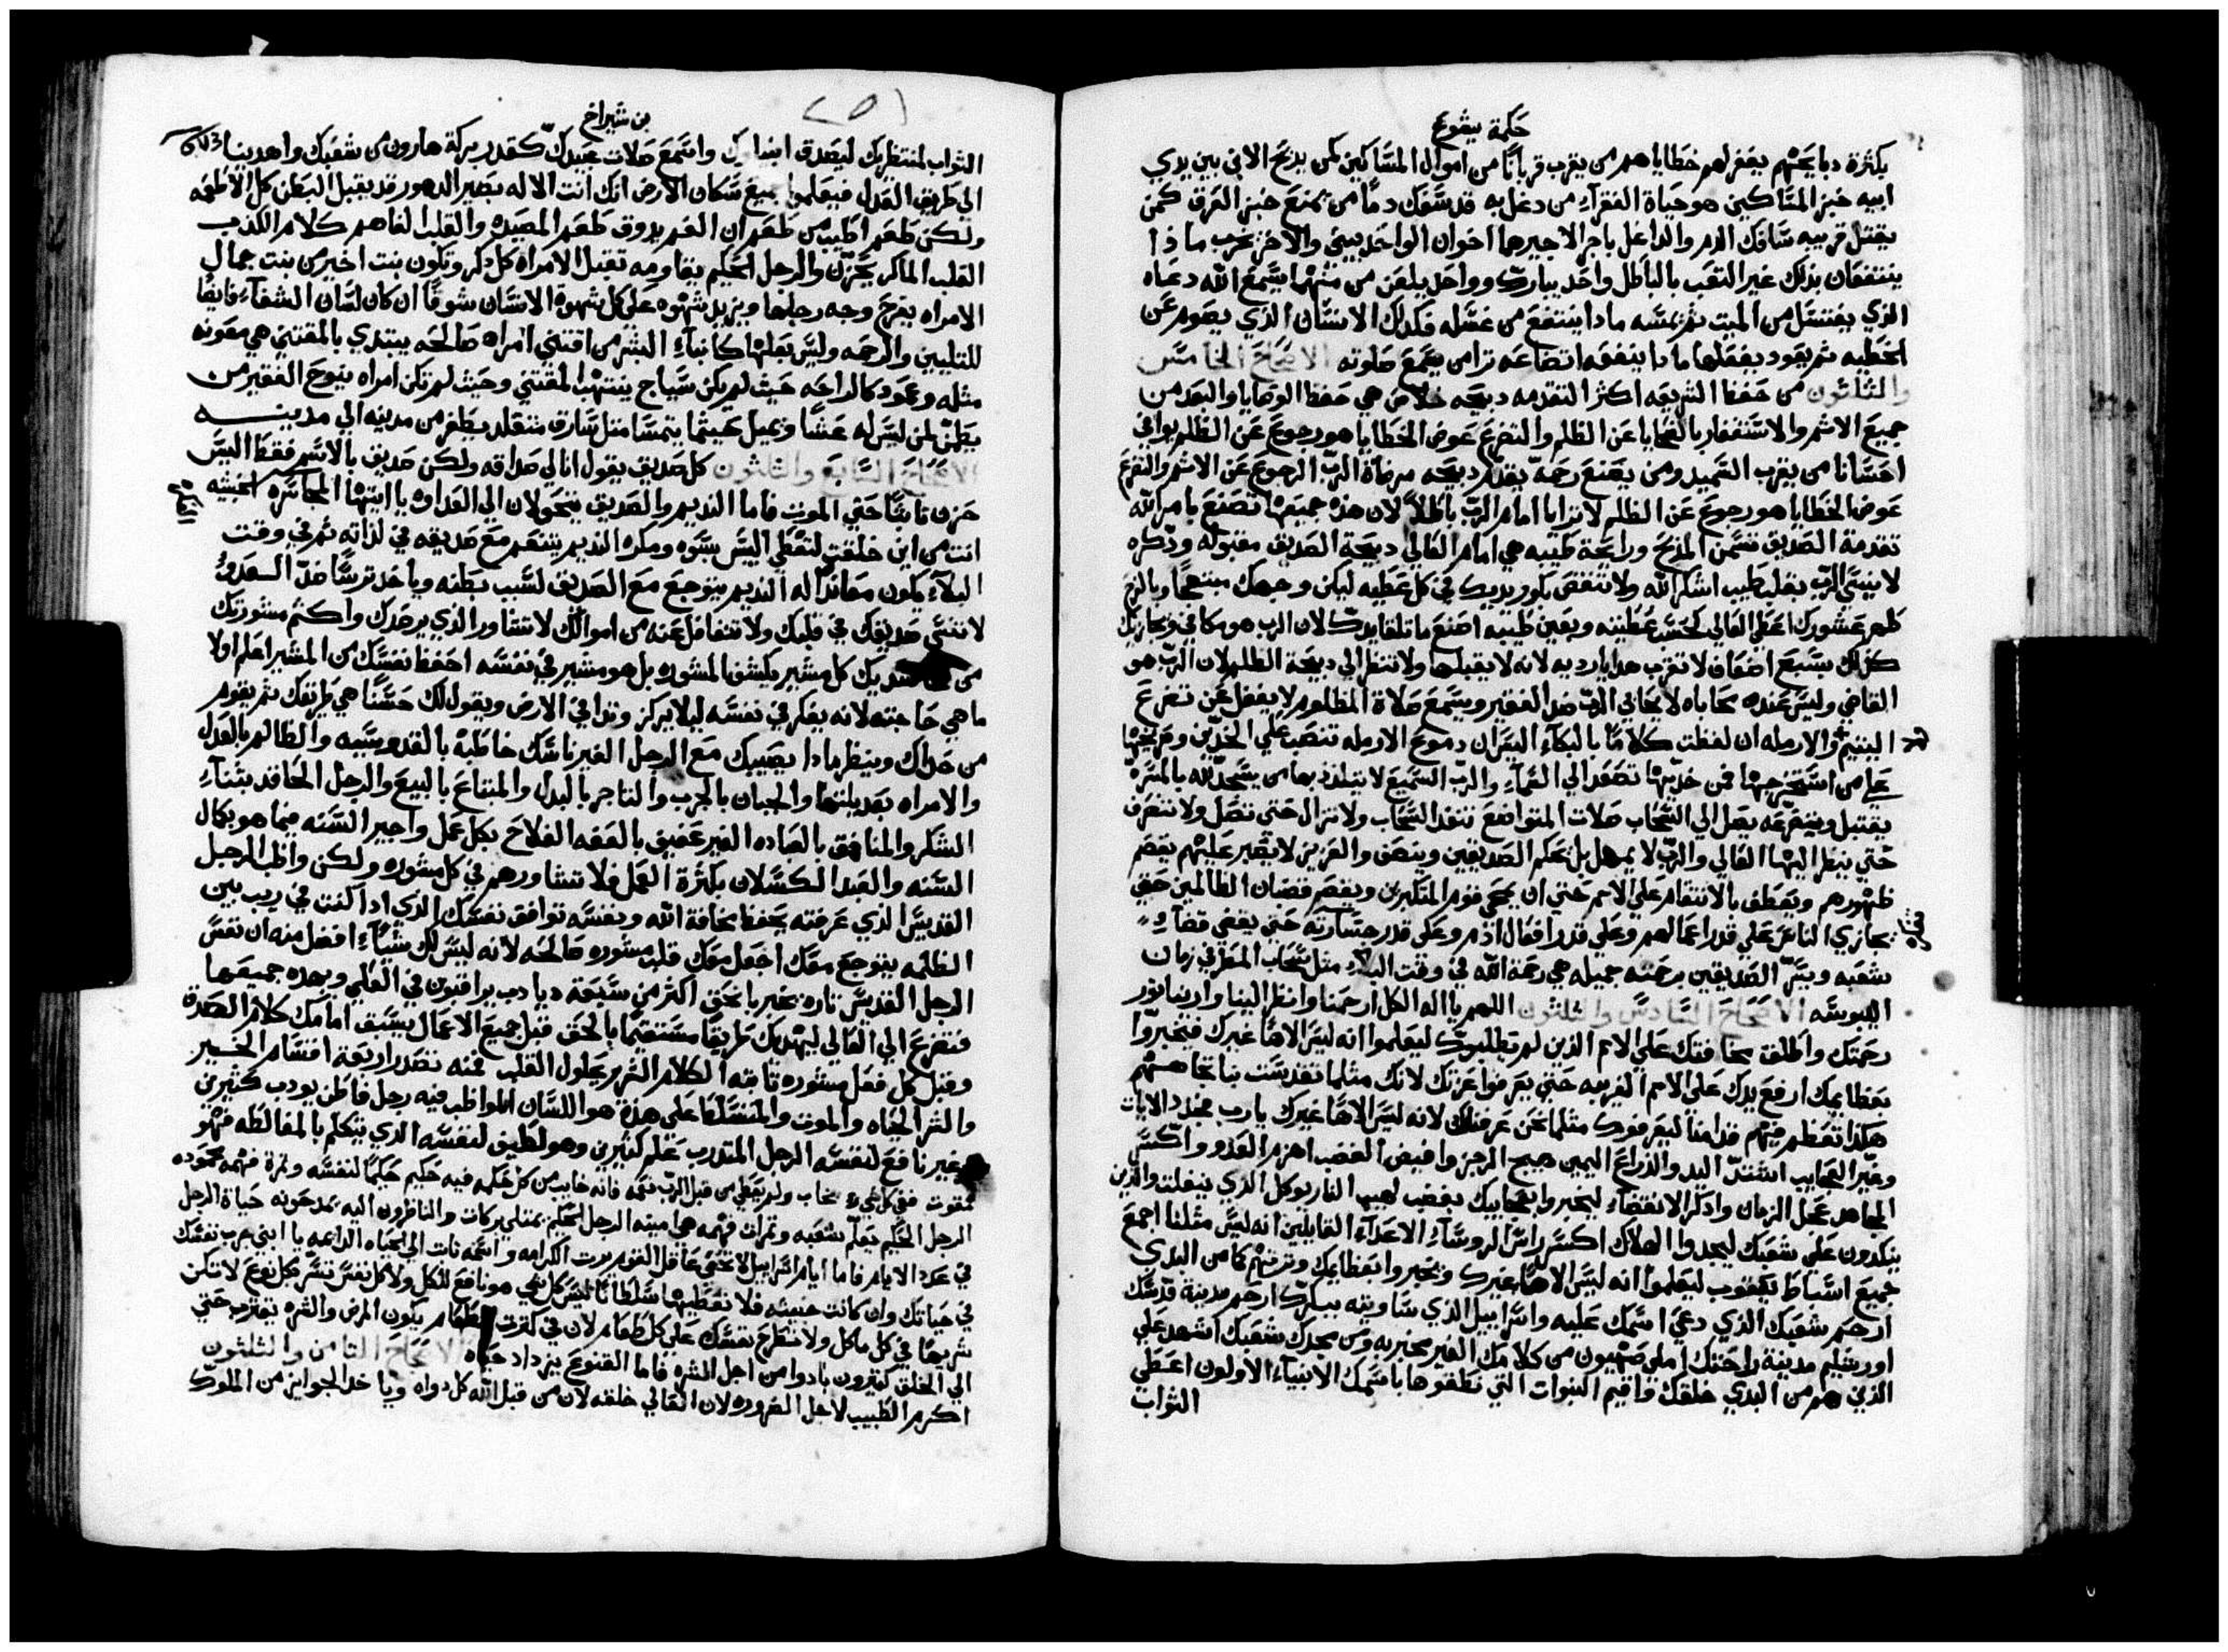 حكمة يشوع
بكثرة دبايحهم يغفر لهم خطاياهم من يقرب قربانًا من اموال المساكين كمن يدبح الابن بين يدي
ابيه خبز المساكين هو حياة الفقرآء من دغل به قد سفك دمًا من يمنع خبز العرق كمن
يقتل قريبه سافك الدم والداغل باجر الاجير هما اخوان الواحد يبني والاخر يخرب ما ذا
ينتفعان بذلك غير التعب بالباطل واحد يبارك وواحد يلعن من منهما يسمع الله دعاه
الذي يغتسل من الميت ثم يمسه مادا ينتفع من غسله فكدلك الانسان الذي يصوم عن
الخطيه ثم يعود يفعلها مادا ينفعه اتضاعه ترا من يسمع صلوته الاصحاح الخامس
والثلثون من حفظ الشريعه اكثر التقدمه دبيحه خلاص هي حفظ الوصايا والبعد من
جميع الاثم والاستغفار بالضحايا عن الظلم والتضرع عوض الخطايا هو رجوع عن الظلم يوافي
احسانا من يقرب السميد ومن يصنع رحمة يقدم دبيحه مرضاة الرب الرجوع عن الاثم والتضرع
عوض الخطايا هو رجوع عن الظلم لا ترايا امام الرب باطلاً لان هذه جميعها تصنع بامر الله
تقدمة الصديق تسمن المذبح ورايحة طيبه هي امام العالي دبيحة الصديق مقبوله وذكره
لا ينسى الرب بقلب طيب اشكر الله ولا تنقص بكور يديك في كل عطيه ليكن وجهك مبتهجًا وبالفرح
طهر عشورك اعطي العالي كحسب عطيته وبعين طيبه اصنع ما تلقا يدك لان الرب هو مكافي ويجازيك
كذلك بسبع اضعاف لا تقرب هدايا رديه لانه لا يقبلها ولا تنظر الي دبيحة الظلم لان الرب هو
القاضي وليس عنده محاباه لا يحابي الرب ضد الفقير ويسمع صلاة المظلوم لا يغفل عن تضرع
اليتيم والارمله ان لفظت كلامًا بالبكآء اليس ان دموع الارمله تنصب علي الخدين وصريخها
علي من استخرجها فمن خديها تصعد الي السمآء والرب السميع لا يتلذذ بها من يسجد لله بالمسرة
يقتبل وتضرعه يصل الي السحاب صلات المتواضع تنفد السحاب ولا تزال حتي تصل ولا تنصرف
حتي ينظر اليها العالي والرب لا يمهل بل يحكم الصديقين وينصف والعزيز لا يصبر عليهم يقصم
ظهورهم ويعطف بالانتقام علي الامم حتي ان يمحي قوم المتكبرين ويقصم قضبان الظالمين حتي
يجازي الناس علي قدر اعمالهم وعلي قدر افعال اذم وعلي قدر جسارته حتي يقضي قضآء
شعبه ويسر الصديقين برحمته جميله هي رحمة الله في وقت البلآء مثل سحاب المطر في زمان
اليبوسه الاصحاح السادس والثلثون اللهم يا اله الكل ارحمنا وانظر الينا وارينا نور
رحمتك واطلق مخافتك علي الامم الذين لم يطلبوك ليعلموا انه ليس الاهًا غيرك فيخبروا
بعظايمك ارفع يدك علي الامم الغريبه حتي يعرفوا عزتك لانك مثلما تقدست بنا تجاههم
هكذا تعظم فيهم قدامنا ليعرفوك مثلما نحن عرفناك لانه ليس الاهًا غيرك يا رب جدد الايات
وغير العجايب اشدد اليد والذراع اليمين هيج الرجز وافيض الغضب اهزم العدو واكسر
المجاهد عجل الزمان واذكر الانقضآء ليخبروا بعجايبك بغضب لهيب النار يوكل الذي ينفلت والذين
ينكدون علي شعبك ليجدوا الهلاك اكسر راس الروسآء الاعدآء القايلين انه ليس مثلنا اجمع
جميع اسباط يعقوب ليعلموا انه ليس الاهًا غيرك ويخبروا بعظايمك وترثهم كما من البدي
ارحم شعبك الذي دعي اسمك عليه واسراييل الذي ساويته ببكرك ارحم مدينة قدسك
اورشليم مدينة راحتك املي صهيون من كلامك الغير مخبر به ومن مجدك شعبك اشهد علي
الذين هم من البدي خلقك واقيم النبوات التي نطقوها باسمك الانبيآء الاولون اعطي
الثواب
بن شيراخ
الثواب لمنتظريك ليصدق انبياوك واسمع صلات عبيدك كقدر بركة هارون من شعبك واهدينا
الي طريق العدل فيعلموا جميع سكان الارض انك انت الاله بصير الدهور قد يقبل البطن كل الاطعمه
ولكن طعم اطيب من طعم ان الفم يدوق طعم المصيده والقلب الفاهم كلام الكذب
القلب الماكر يحزن والرجل الحكيم يقاومه تقبل الامراه كل ذكر وتكون بنت اخير من بنت جمال
الامراه يفرح وجه رجلها ويزيد شهوه علي كل شهوة الانسان شوقًا ان كان لسان الشفآء فايضًا
للتليين والرحمه وليس بعلها كابنآء البشر من اقتني امراه صالحه يبتدي بالمقتني هي معونه
مثله وعمود كالراحه حيث لم يكن سياج ينتهب المقتني وحيث لم تكن امراه ينوح الفقير من
يطمن لمن ليس له عشًا ويميل حيثما يتمسا مثل سارق متقلد يطفر من مدينه الي مدينه
الاصحاح السابع والثلثون كل صديق يقول انا لي صداقه ولكن صديق بالاسم فقط اليس
حزن ثابتًا حتي الموت فاما النديم والصديق يتحولان الي العداوه يا ايتها المجاسره الخبيثه
انت من اين خلقت لتغطي اليبس بسوه ومكره النديم يتنعم مع صديقه في لذاته ثم في وقت
البلآء يكون معاندًا له النديم يتوجع مع الصديق لسبب بطنه وياخد ترسًا ضد العدو
لا تنسي صديقك في قلبك ولا تتغافل عنه من اموالك لا تتشاور الذي يرصدك واكتم مشورتك
من حاسديك كل مشير يكشف المشوره بل هو مشير في نفسه احفظ نفسك من المشير اعلم اولا
ما هي حاجته لانه يفكر في نفسه ليلا يركز وتدا في الارض ويقول لك حسنًا هي طريقك ثم يقوم
من حداك وينظر مادا يصيبك مع الرجل الغير ناسك خاطبه بالقدوسيه والظالم بالعدل
والامراه بعديلتها والجبان بالحرب والتاجر بالبدل والمبتاع بالبيع والرجل الحاقد بثنآء
الشكر والمنافق بالعباده الغير عفيف بالعفه الفلاح بكل عمل واجير السنه فيما هو بكال
السنه والعبد الكسلان بكثرة العمل فلا تتشاورهم في كل مشوره ولكن واظب الرجل
القديس الذي عرفته يحفظ مخافة الله ونفسه توافق نفسك الذي ادا كنت في ريب بين
الظلمه يتوجع معك اجعل معك قلب مشوره صالحه لانه ليس لك شيآء افضل منه ان نفس
الرجل القديس تاره تخبر بالحق اكثر من سبعة ديادب يراقبون في العلي وبهده جميعها
فتضرع الي العالي ليهديك طريقًا مستقيمًا بالحق قبل جميع الاعمال يسبق امامك كلام الصدق
وقبل كل فعل مشوره ثابته الكلام الشرير يحاول القلب فمنه تصدر اربعة اقسام الخير
والشر الحياه والموت والمتسلط علي هذه هو اللسان المواظب فيه رجل فاطن يودب كثيرين
غير نافع لنفسه الرجل المتدرب علم كثيرين وهو لطيف لنفسه الذي يتكلم بالمغالطه فهو
ممقوت ففي كل شيء يخاب ولم يعطي من قبل الرب نعمه فانه خايب من كل حكمه فيه حكيم حكيمًا لنفسه وثمرة فهمه محموده
الرجل الحكيم يعلم شعبه وثمرات فهمه هي امينه الرجل الحكيم يمتلي بركات والناظرون اليه يمدحونه حياة الرجل
في عدد الايام فاما ايام اسراييل لا تحصي عاقل القوم يرث الكرامه واسمه ثابت الي الحياه الدايمه يا ابني جرب نفسك
في حياتك وان كانت خبيثه فلا تعطيها سلطانًا ليس كل شي هو نافع للكل ولا كل نفس تسر بكل نوع لا تكن
شرهًا في كل ماكل ولا تطرح نفسك علي كل طعام لان في كثرت الطعام يكون المرض والشره يقترب حتي
الي الخلق كثيرون بادوا من اجل الشره فاما القنوع يزداد حياه الاصحاح الثامن والثلثون
اكرم الطبيب لاجل الضروره لان العالي خلقه لان من قبل الله كل دواه وياخد الجوايز من الملوك